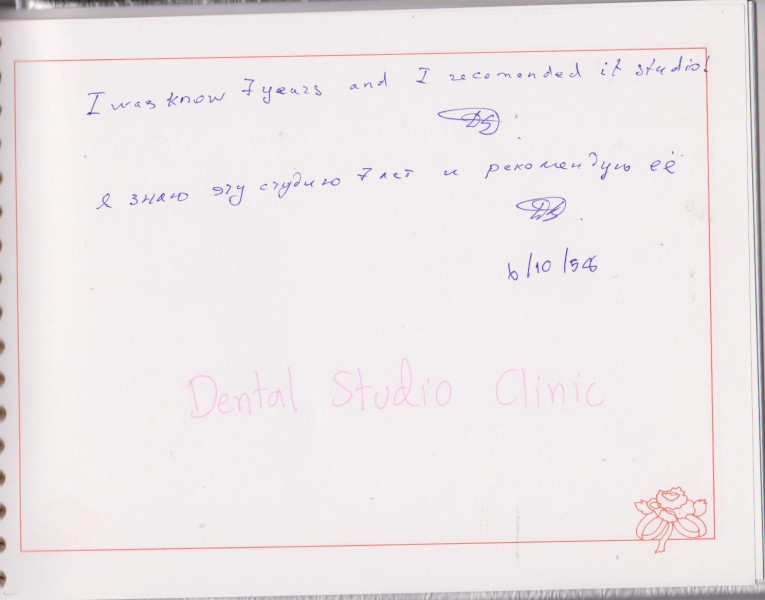 I was know 7 years and I recomended it studio!
Я знаю эту студию 7 лет и рекомендую её
6/10/98
Dental Studio Clinic